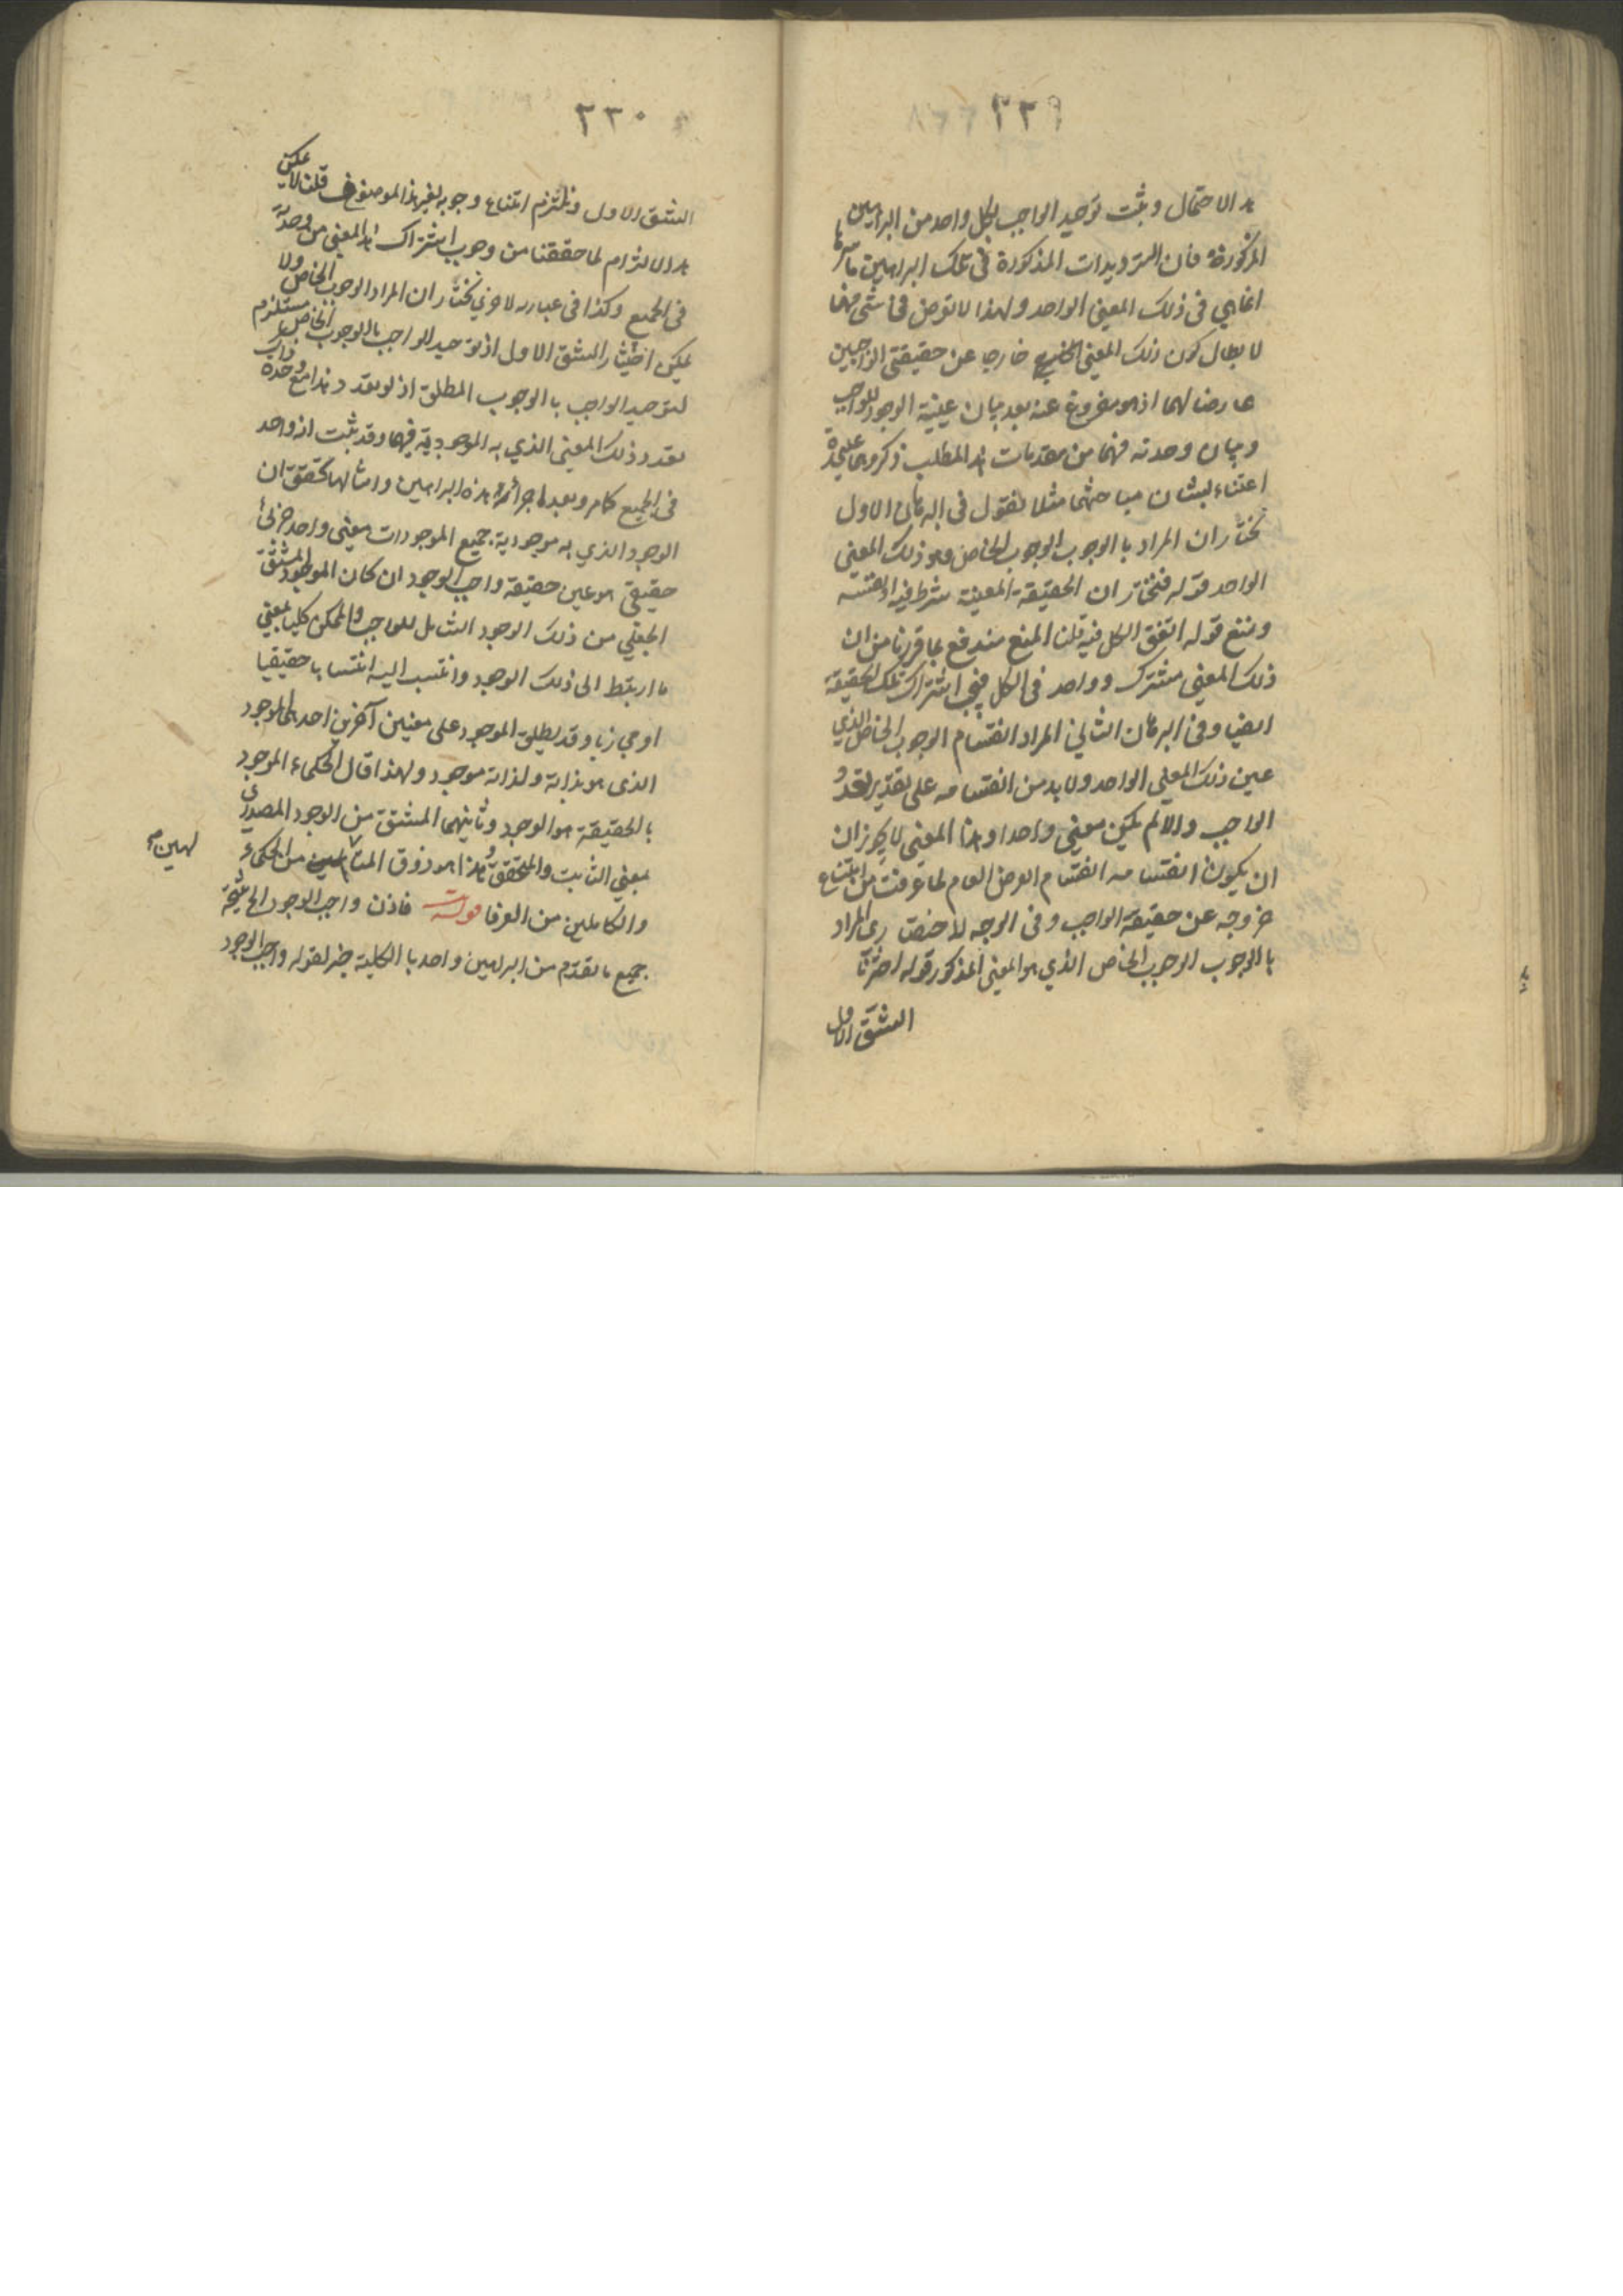 ٣٢٩
هذا الاحتمال وثبت توحيد الواجب بكل واحد من البراهين
المذكورة فان الترديدات المذكورة فى تلك البراهين باسرها
انما هي فى ذلك المعنى الواحد ولهذا لا تعرض فى شئ منها
لابطال كون ذلك المعنى خارجا عن حقيقتى الواجبين
عارضا لهما اذ هو مفروغ عنه بعد بيان عينية الوجود للواجب
وبيان وحدته فهما من مقدمات هذا المطلب ذكروهما عليحدة
اعتناء لشان مباحثهما مثلا نقول فى البرهان الاول
نختار ان المراد بالوجوب الوجوب الخاص وهو ذلك المعنى
الواحد قوله فنختار ان الحقيقة المعينة شرط فيه او نفسه
ونمنع قوله اتفق الكل فيه قلنا المنع مندفع بما قررنا من ان
ذلك المعنى مشترك وواحد فى الكل فيجب اشتراك تلك الحقيقة
ايضا وفى البرهان الثاني المراد انقسام الوجوب الخاص الذي
عين ذلك المعنى الواحد ولا بد من انقسامه على تقدير تعدد
الواجب والا لم يكن معنى واحدا وهذا المعنى لا يجوز ان
ان يكون انقسامه انقسام العرض العام لما عرفت من امتناع
خروجه عن حقيقة الواجب وفى الوجه الاخصرى المراد
بالوجوب الوجوب الخاص الذي هو المعنى المذكور قوله اخترنا
الشق الاول
٣٣٠
الشق الاول ونلتزم امتناع وجوب لغير هذا الموصوف قلنا لا يمكن
هذا الالتزام لما حققنا من وجوب اشتراك هذا المعنى من وحدته
فى الجميع وكذا فى عباره لاخرى نختار ان المراد الوجوب الخاص ولا
يمكن اختيار الشق الاول اذ توحيد الواجب بالوجوب الخاص مستلزم
لتوحيد الواجب بالوجوب المطلق اذ لو تعدد وهذا مع وحدة ذلك
تعدد ذلك المعنى الذي به الموجودية فيهما وقد ثبت انه واحد
فى الجميع كما مر وبعد اجراء هذه البراهين وامثالها تحقق ان
الوجود الذي به موجودية جميع الموجودات معنى واحد جزئى
حقيقى هو عين حقيقة واجب الوجود ان كان الموجود المشتق
الجعلي من ذلك الوجود الشامل للواجب والممكن كليا بمعنى
ما ارتبط الى ذلك الوجود وانتسب اليه انتسابا حقيقيا
او مجازيا وقد يطلق الموجود على معنيين آخرين احدهما الموجود
الذى هو بذاته ولذاته موجود ولهذا قال الحكماء الموجود
بالحقيقة هو الوجود وثانيهما المشتق من الوجود المصدرى
بمعنى الثابت والمتحقق وهذا هو ذوق المتالهين من الحكماء
لهين م
والكاملين من العرفا قوله فاذن واجب الوجود الخ نتيجة
جميع ما تقدم من البراهين واحد بالكلية خبر لقوله واجب الوجود